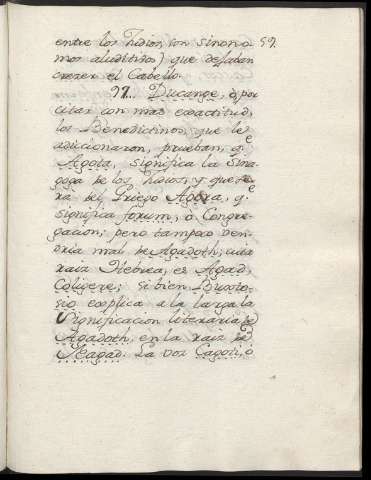 entre los Judios, son sinono 59.
mos aluditivos) que dejaban
crezer el Cabello.
97... Ducange, o, por
citar con mas exactitud,
los Benedictinos, que le
adiccionaron, prueban, q.e
Agota, significa la Sina
goga de los Judios, y que
xa del Griego Agora, q.e
significa forum, o Congre-
gacion; pero tampoco ven-
dria mal de Agadoth; cuia
raiz Hebrea, es Agad,
Coligere; si bien Buxto-
sio explica a la larga la
Significacion literaria de
Agadoth, en la raiz de
Hagad. La voz Cagoti, o